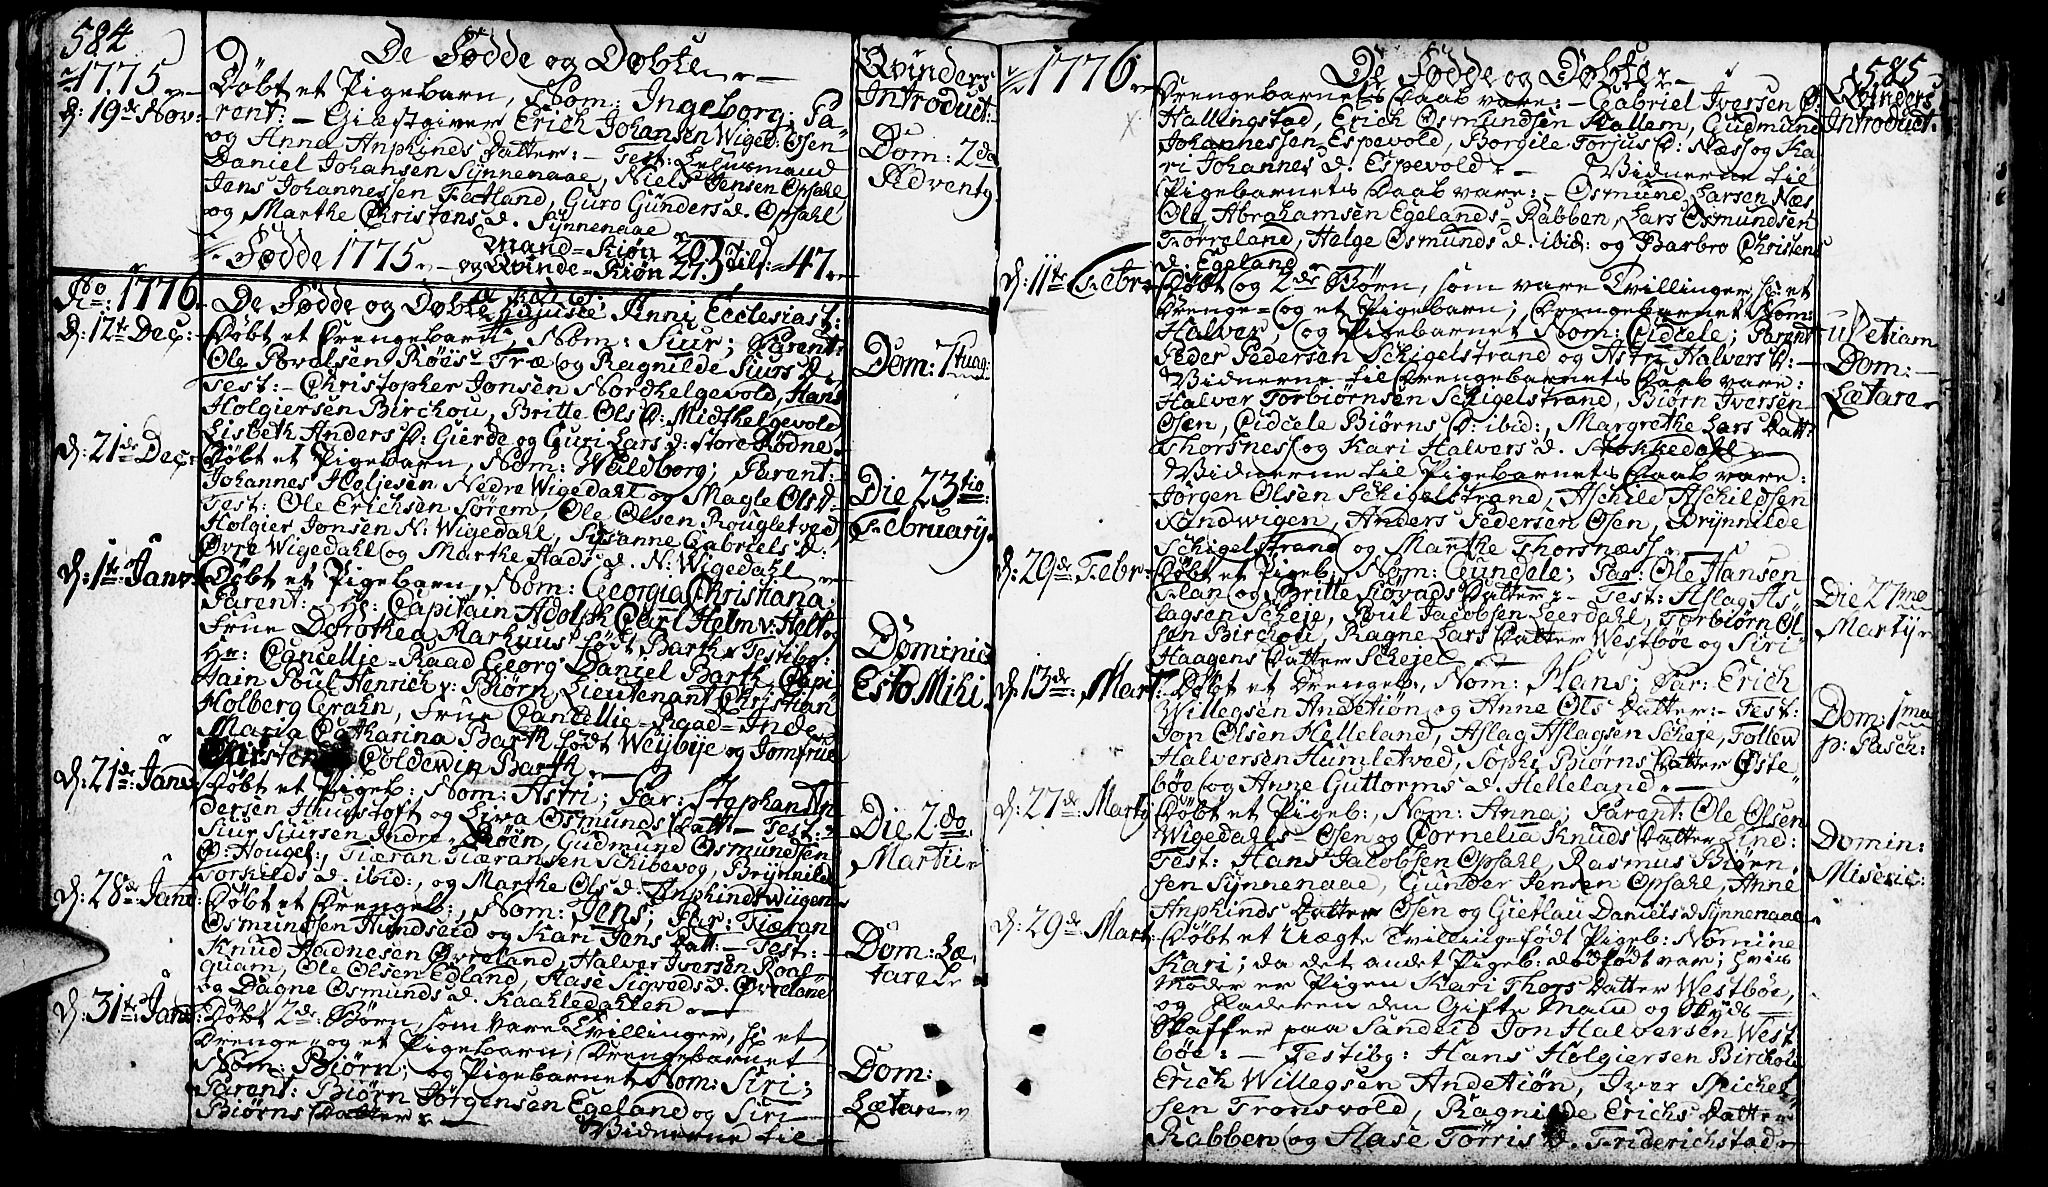 584
De Fødde og Døbte
Qvinders
Introduct:
1775
d: 19de Nov:
Døbt et Pigebarn, Nom: Ingeborg; Pa-
rent: Giæstgiver Erich Johansen Wiged: Osen
og Anna Anphines Datter: Test: Lehnsmand
Daniel Johansen Synnenaae, Niels Jensen Opsahl
Jens Johannessen Fætland, Guro Gunders d. Opsahl
og Marthe Christens d. Synnenaae
Dom: 2da
Adventy
Fødde 1775 Mand-Kiøn 20
og Qvinde-Kiøn 27 Tils: 47
Ao: 1776
De Fødde og Døbte hujusce Anni Ecclesiast:
d: 12te Dec:
Døbt et Drengebarn, Nom: Siur; Parent:
Ole Povelsen Røös-Træ og Ragnilde Siurs d.
Test: Christopher Jonsen Nordhelgevold, Hans
Holgiersen Birckou, Britte Ols D: Midthelgevold
Lisbeth Anders D: Gierde og Guri Lars d: Store Rødne
Dom: 7tuag:
d: 21de Dec:
Døbt et Pigebarn, Nom: Waldborg; Parent:
Johannes Holjesen Nedre Wigedahl og Magle Ols D:
Test: Ole Erichsen Sørem, Ole Olsen Rougletved
Holgier Jonsen N: Wigedahl, Susanne Gabriels d:
Øvre Wigedahl og Marthe Hads d. N: Wigedahl
Die 23tio
February
d: 1te Janr:
Døbt et Pigebarn, Nom: Georgia Christiana;
Parent: Hr: Capitain Adolph Carl Helm v: Holt og
Frue Dorothea Marhuus født Barth Testibg:
Hr: Cancellie-Raad Georg Daniel Barth, Capi
tain Poul Henrich v: Biørn, Lieutenant Christian
Holberg Grahn, Frue Cancellie-Raad-Inde
Maria Catharina Barth født Weybye og Jomfrue
Coldewin Barth
Dominic:
Esto Mihi
d: 21de Janr:
Døbt et Pigeb: Nom: Astri; Par: Stephan An
dersen Huustoft og Siva Osmunds Datt: Test:
Siur Siursen Indre-Røen, Gudmund Osmundsen
Ø: Houget, Tiæran Tiæransen Schibevog, Brynnilde
Torkilds d. ibid:, og Marthe Ols d: Anphindswiigen
Die 2do
Martii
d: 28de Janr:
Døbt et Drengeb:, Nom: Jens; Par: Tiæran
Osmundsen Hundseid og Kari Jens Datt: Test:
Knud Hadnesen Øvreland, Halver Iversen Roal
quam, Ole Olsen Edland, Aase Sigvods d. Øvreland
og Dagne Osmunds d. Kaahledahlen
Dom: Læ-
tare
d: 31te Janr:
Døbt 2de Børn, som vare Tvillinger, s: et
Drenge- og et Pigebarn; Drengebarnet
Nom: Biørn; og Pigebarnet Nom: Siri;
Parent: Biørn Jørgensen Egeland og Siri
Biørns Datter
Vidnerne til
Dom:
Lætare
1776
De Fødde og Døbte
585
Qvinders
Introduct:
Drengebarnets Daab vare: Gabriel Iversen D:
Hallingstad, Erich Osmundsen Hallem, Gudmund
Johannessen Espevold, Borgile Torjus D: Næss og Ka
ri Johannes d. Espevold. Vidnerne til
Pigebarnets Daab vare: Osmund Larsen Næs
Ole Abrahamsen Egelands-Rabben, Lars Osmundsen
Førreland, Helge Osmunds d. ibid: og Barbro Christens
d. Egeland
d: 11te Febr:
Døbt og 2de Børn, som vare Tvillinger, s: et
Drenge- og et Pigebarn; Drengebarnet Nom:
Halver, og Pigebarnet Nom: Cidcele; Parent:
Peder Pedersen Schigelstrand og Astri Halvers D:
Vidnerne til Drengebarnets Daab vare:
Halver Torbiørnsen Schigelstrand, Biørn Iversen
Osen, Cidcele Biørns D: ibid:, Margrethe Lars Datt:
Thorsness og Kari Halvers d. Stokkedahl
Vidnerne til Pigebarnets Daab vare:
Jørgen Olsen Schigelstrand, Aschild Aschildsen
Sandwigen, Anders Pedersen Osen, Brynnilde
Schigelstrand og Marthe Thorsnæss
uti etiam
Dom:
Lætare
d: 29de Febr:
Døbt et Pigeb:, Nom: Gundele; Par: Ole Hansen
Flan og Britte Siovads Datter Test: Aslag As
lagsen Scheje, Poul Jacobsen Leerdahl, Torbiørn Ol
sen Birchou, Ragne Lars Datter Westbøe og Siri
Haagens Datter Schejel
Die 27me
Marty
d. 13de Mart:
Døbt et Drengeb:, Nom: Hans; Par: Erich
Willegsen Andetiøn og Anne Ols Datter: Test:
Jon Olsen Helleland, Aslag Aslagsen Scheje, Tollew
Halversen Humletved, Sophi Biørns Datter Øste-
bøe og Anne Guttorms d. Helleland
Dom: 1ma
p: Pasch:
d: 27de Marty
Døbt et Pigeb:, Nom: Anna; Parent: Ole Olsen
Wigedahls-Osen og Cornelia Knuds Datter Lind:
Test: Hans Jacobsen Opsahl, Rasmus Biørn
sen Synnenaae, Gunder Jensen Opsahl, Anne
Anphinds Datter Osen og Gietlau Daniels d Synnenaae
Domin:
Miseric:
d: 29de Mart:
Døbt et Uægte Tvilling-født Pigeb: Nomine
Kari; da det andet Pigeb: dødfødt var; hvis
Moder er Pigen Kari Thors Datter Westbøe,
og Faderen den Gifte Mand og Skyds-
Skaffer paa Sandeid Jon Halversen West
bøe: Testibg: Hans Holgiersen Birchou
Erich Willegsen Andetiøn, Iver Michel
sen Tronsvold, Ragnilde Erichs Datter
Rabben og Aase Tørris d. Friderichstad